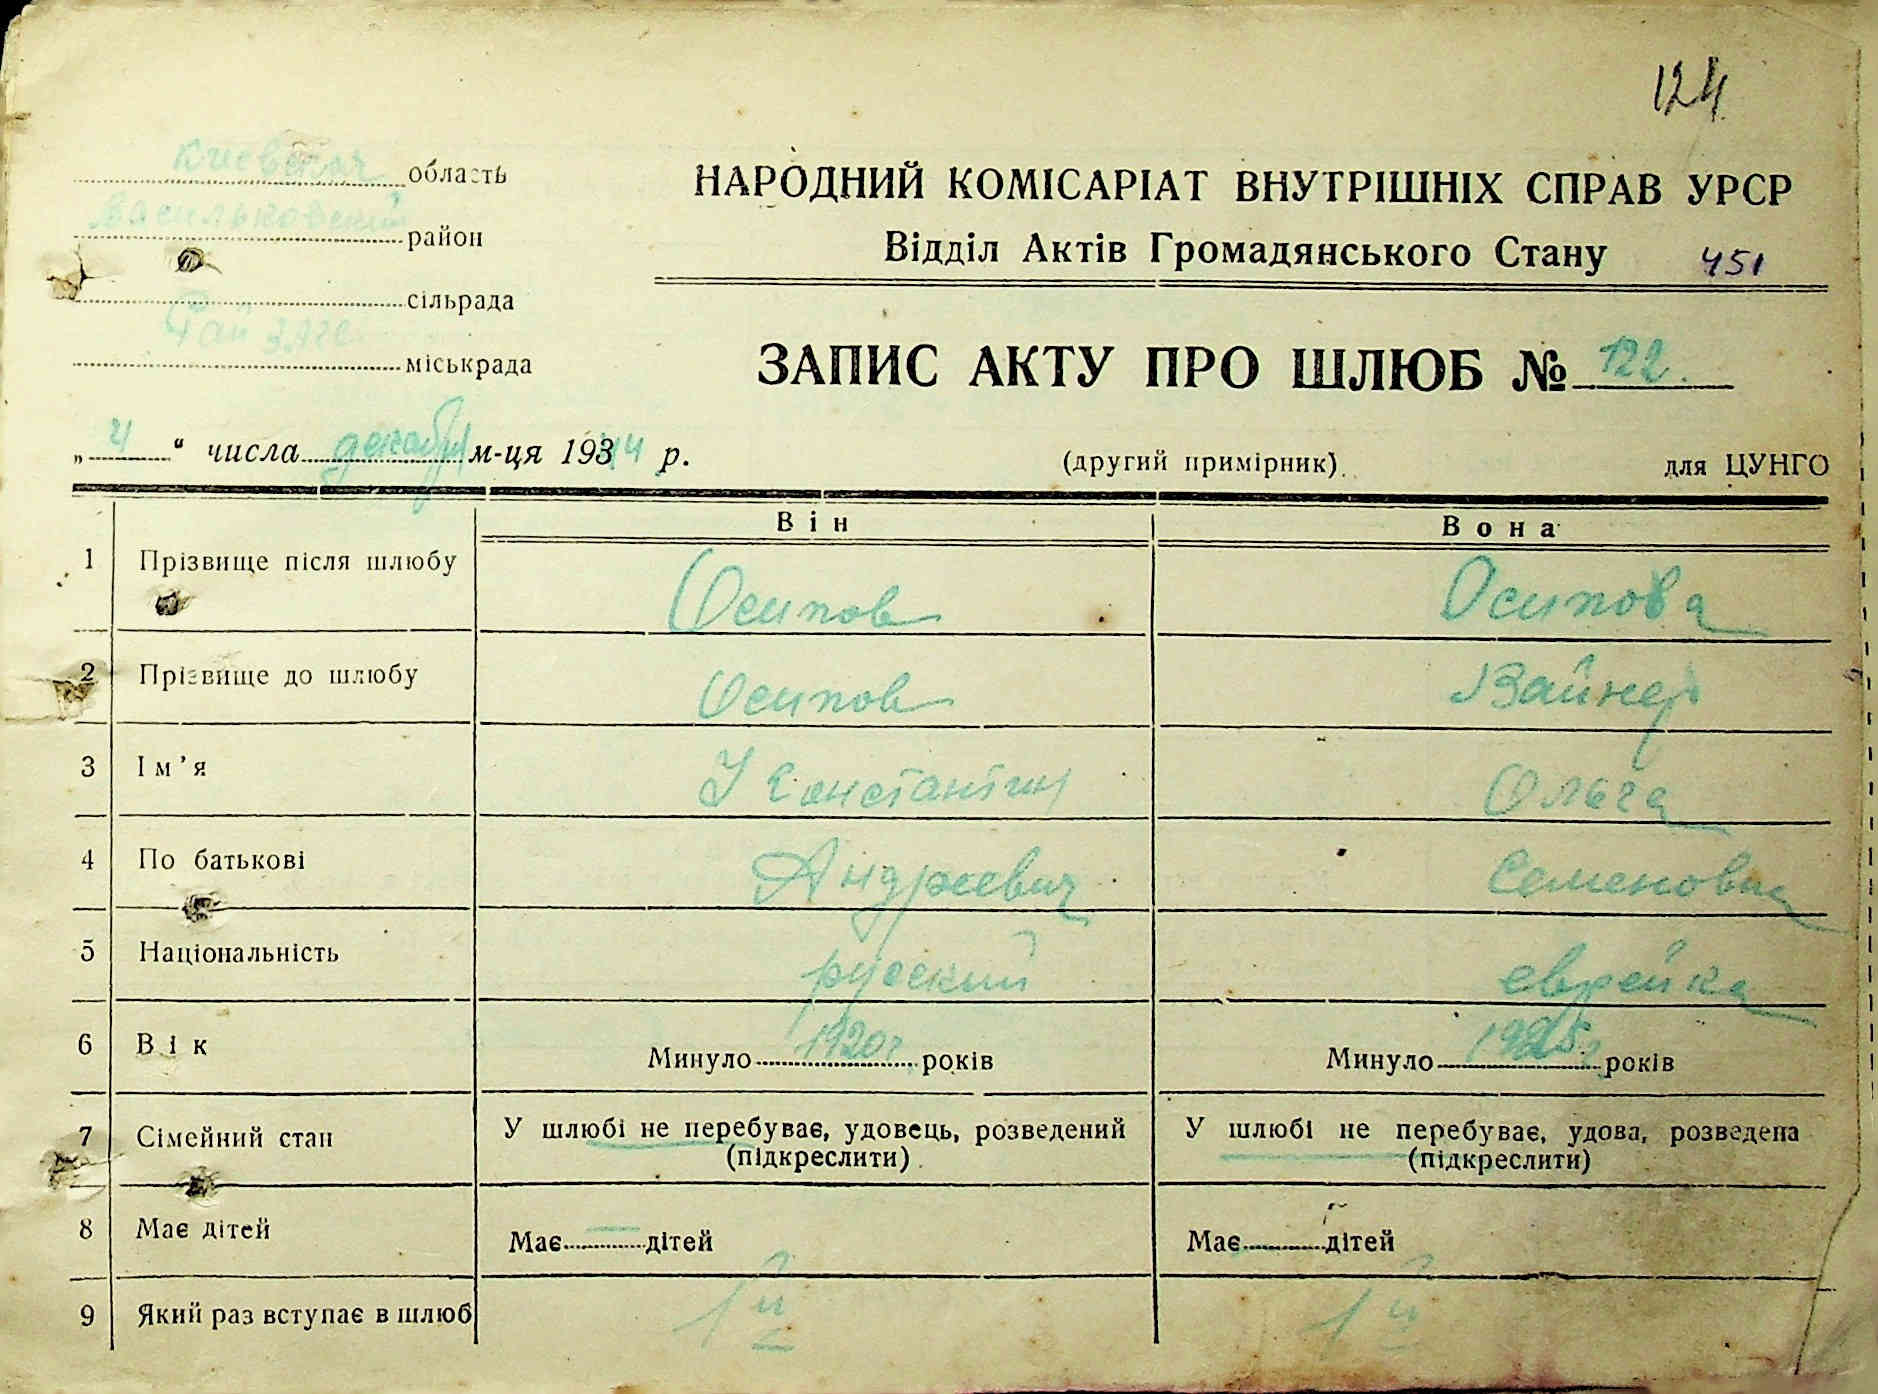 124
Киевская область
Васильковский район
сільрада
Рай загс
міськрада
НАРОДНИЙ КОМІСАРІАТ ВНУТРІШНІХ СПРАВ УРСР
Відділ Актів Громадянського Стану 451
ЗАПИС АКТУ ПРО ШЛЮБ № 122.
„4“ числа декабря м-ця 1944 р. (другий примірник). для ЦУНГО
Він Вона
1 Прізвище після шлюбу Осипов Осипова
2 Прізвище до шлюбу Осипов Вайнер
3 Ім’я Константин Ольга
4 По батькові Андреевич Семеновна
5 Національність русский еврейка
6 Вік Минуло 1920г. років Минуло 1925г. років
7 Сімейний стан У шлюбі не перебуває, удовець, розведений У шлюбі не перебуває, удова, розведена
(підкреслити) (підкреслити)
8 Має дітей Має — дітей Має дітей
9 Який раз вступає в шлюб 1й 1й